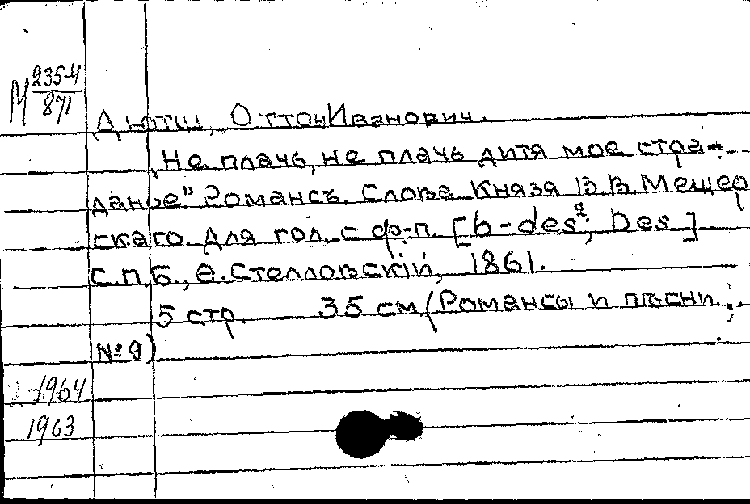 М 235-4
871
Дютш, Оттон Иванович.
„Не плачь, не плачь дитя мое стра-
данье" Романсъ. Слова Князя В.В. Мещер
скаго. Для гол. с ф-п. [b-des², Des]
С.П.Б., Ѳ. Стелловскій, 1861.
5 стр. 35 см (Романсы и пѣсни,
№ 9)
1964
1963